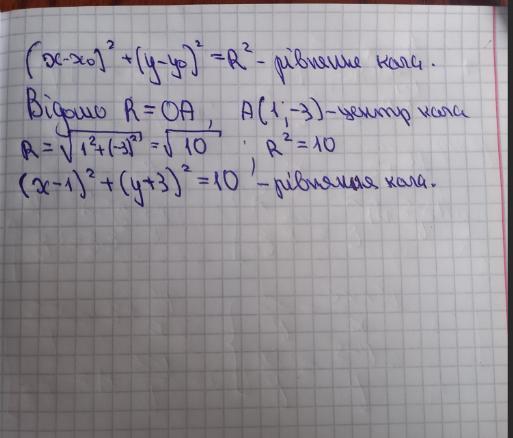 (x-x₀)² + (y-y₀)² = R² - рівняння кола.
Відомо R = OA, A(1;-3) - центр кола
R = √(1²+(-3)²) = √10 ; R² = 10
(x-1)² + (y+3)² = 10 - рівняння кола.